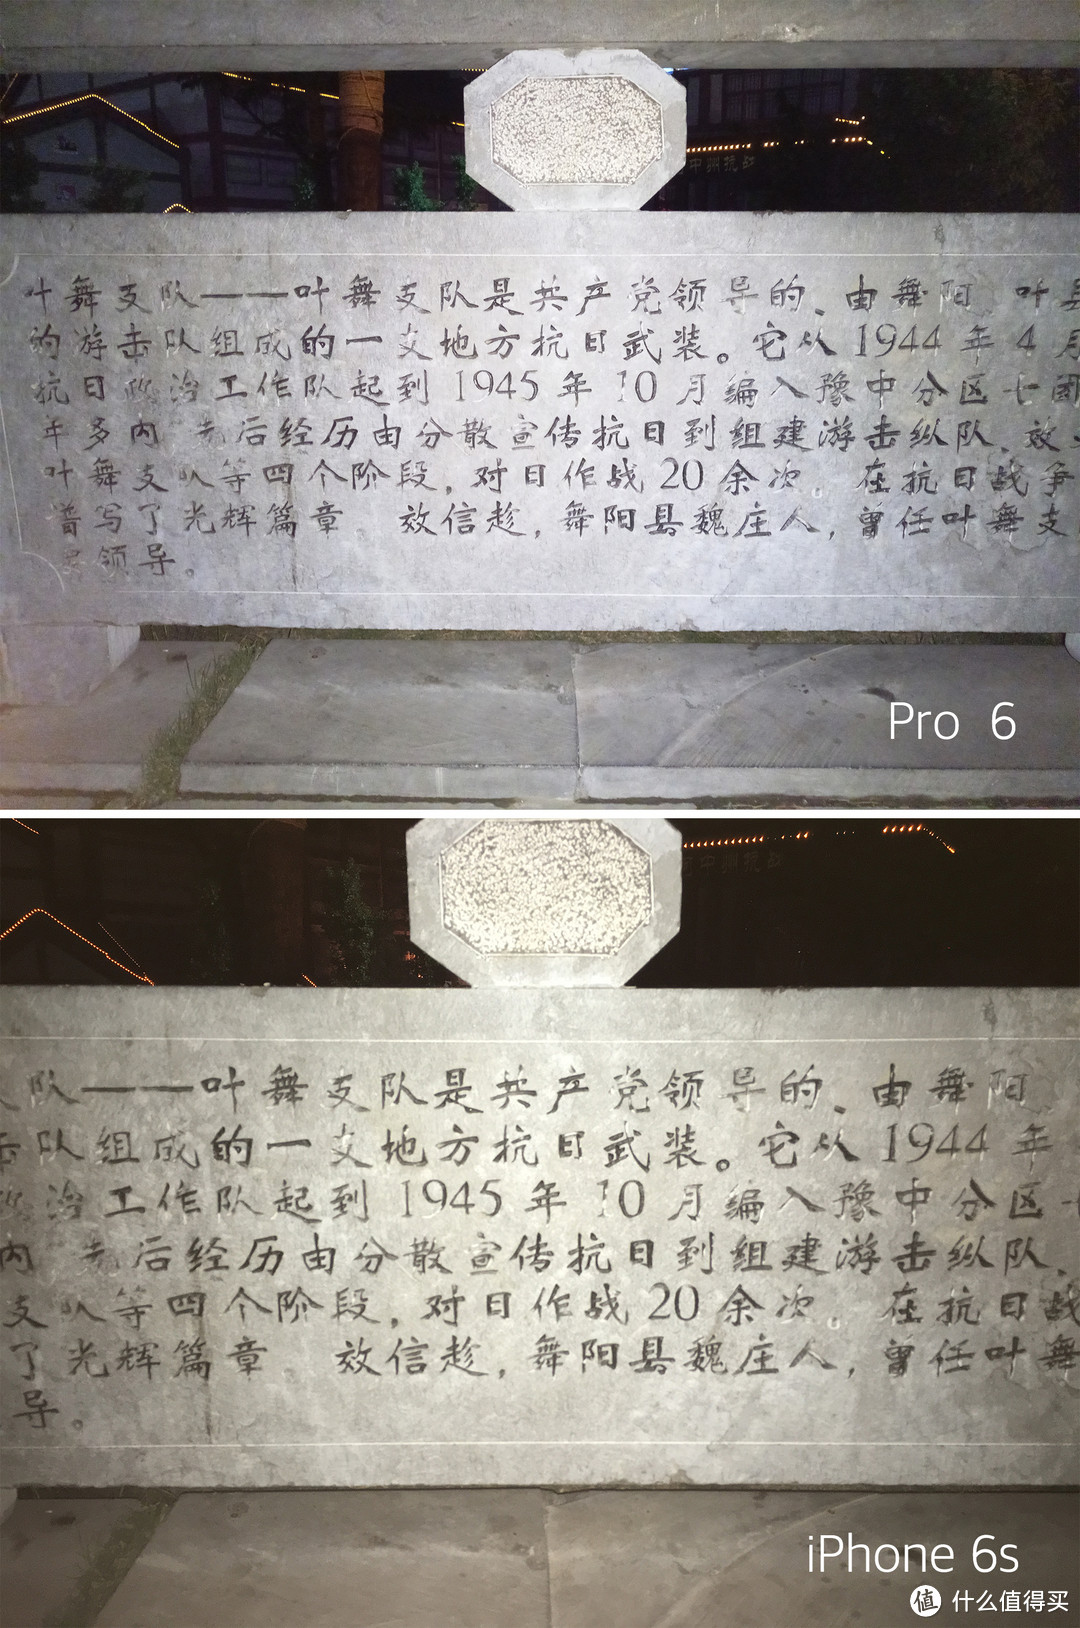 中州抗战
叶舞支队——叶舞支队是共产党领导的、由舞阳 叶县
的游击队组成的一支地方抗日武装。它从1944年4月
抗日政治工作队起到1945年10月编入豫中分区十团
年多内 先后经历由分散宣传抗日到组建游击纵队、效
叶舞支队等四个阶段，对日作战20余次。在抗日战争
谱写了光辉篇章 效信趁，舞阳县魏庄人，曾任叶舞支
要领导。
Pro 6
中州抗战
队——叶舞支队是共产党领导的、由舞阳
击队组成的一支地方抗日武装。它从1944年
政治工作队起到1945年10月编入豫中分区十
内 先后经历由分散宣传抗日到组建游击纵队、
支队等四个阶段，对日作战20余次。在抗日战
了光辉篇章 效信趁，舞阳县魏庄人，曾任叶舞
导。
iPhone 6s
值 什么值得买